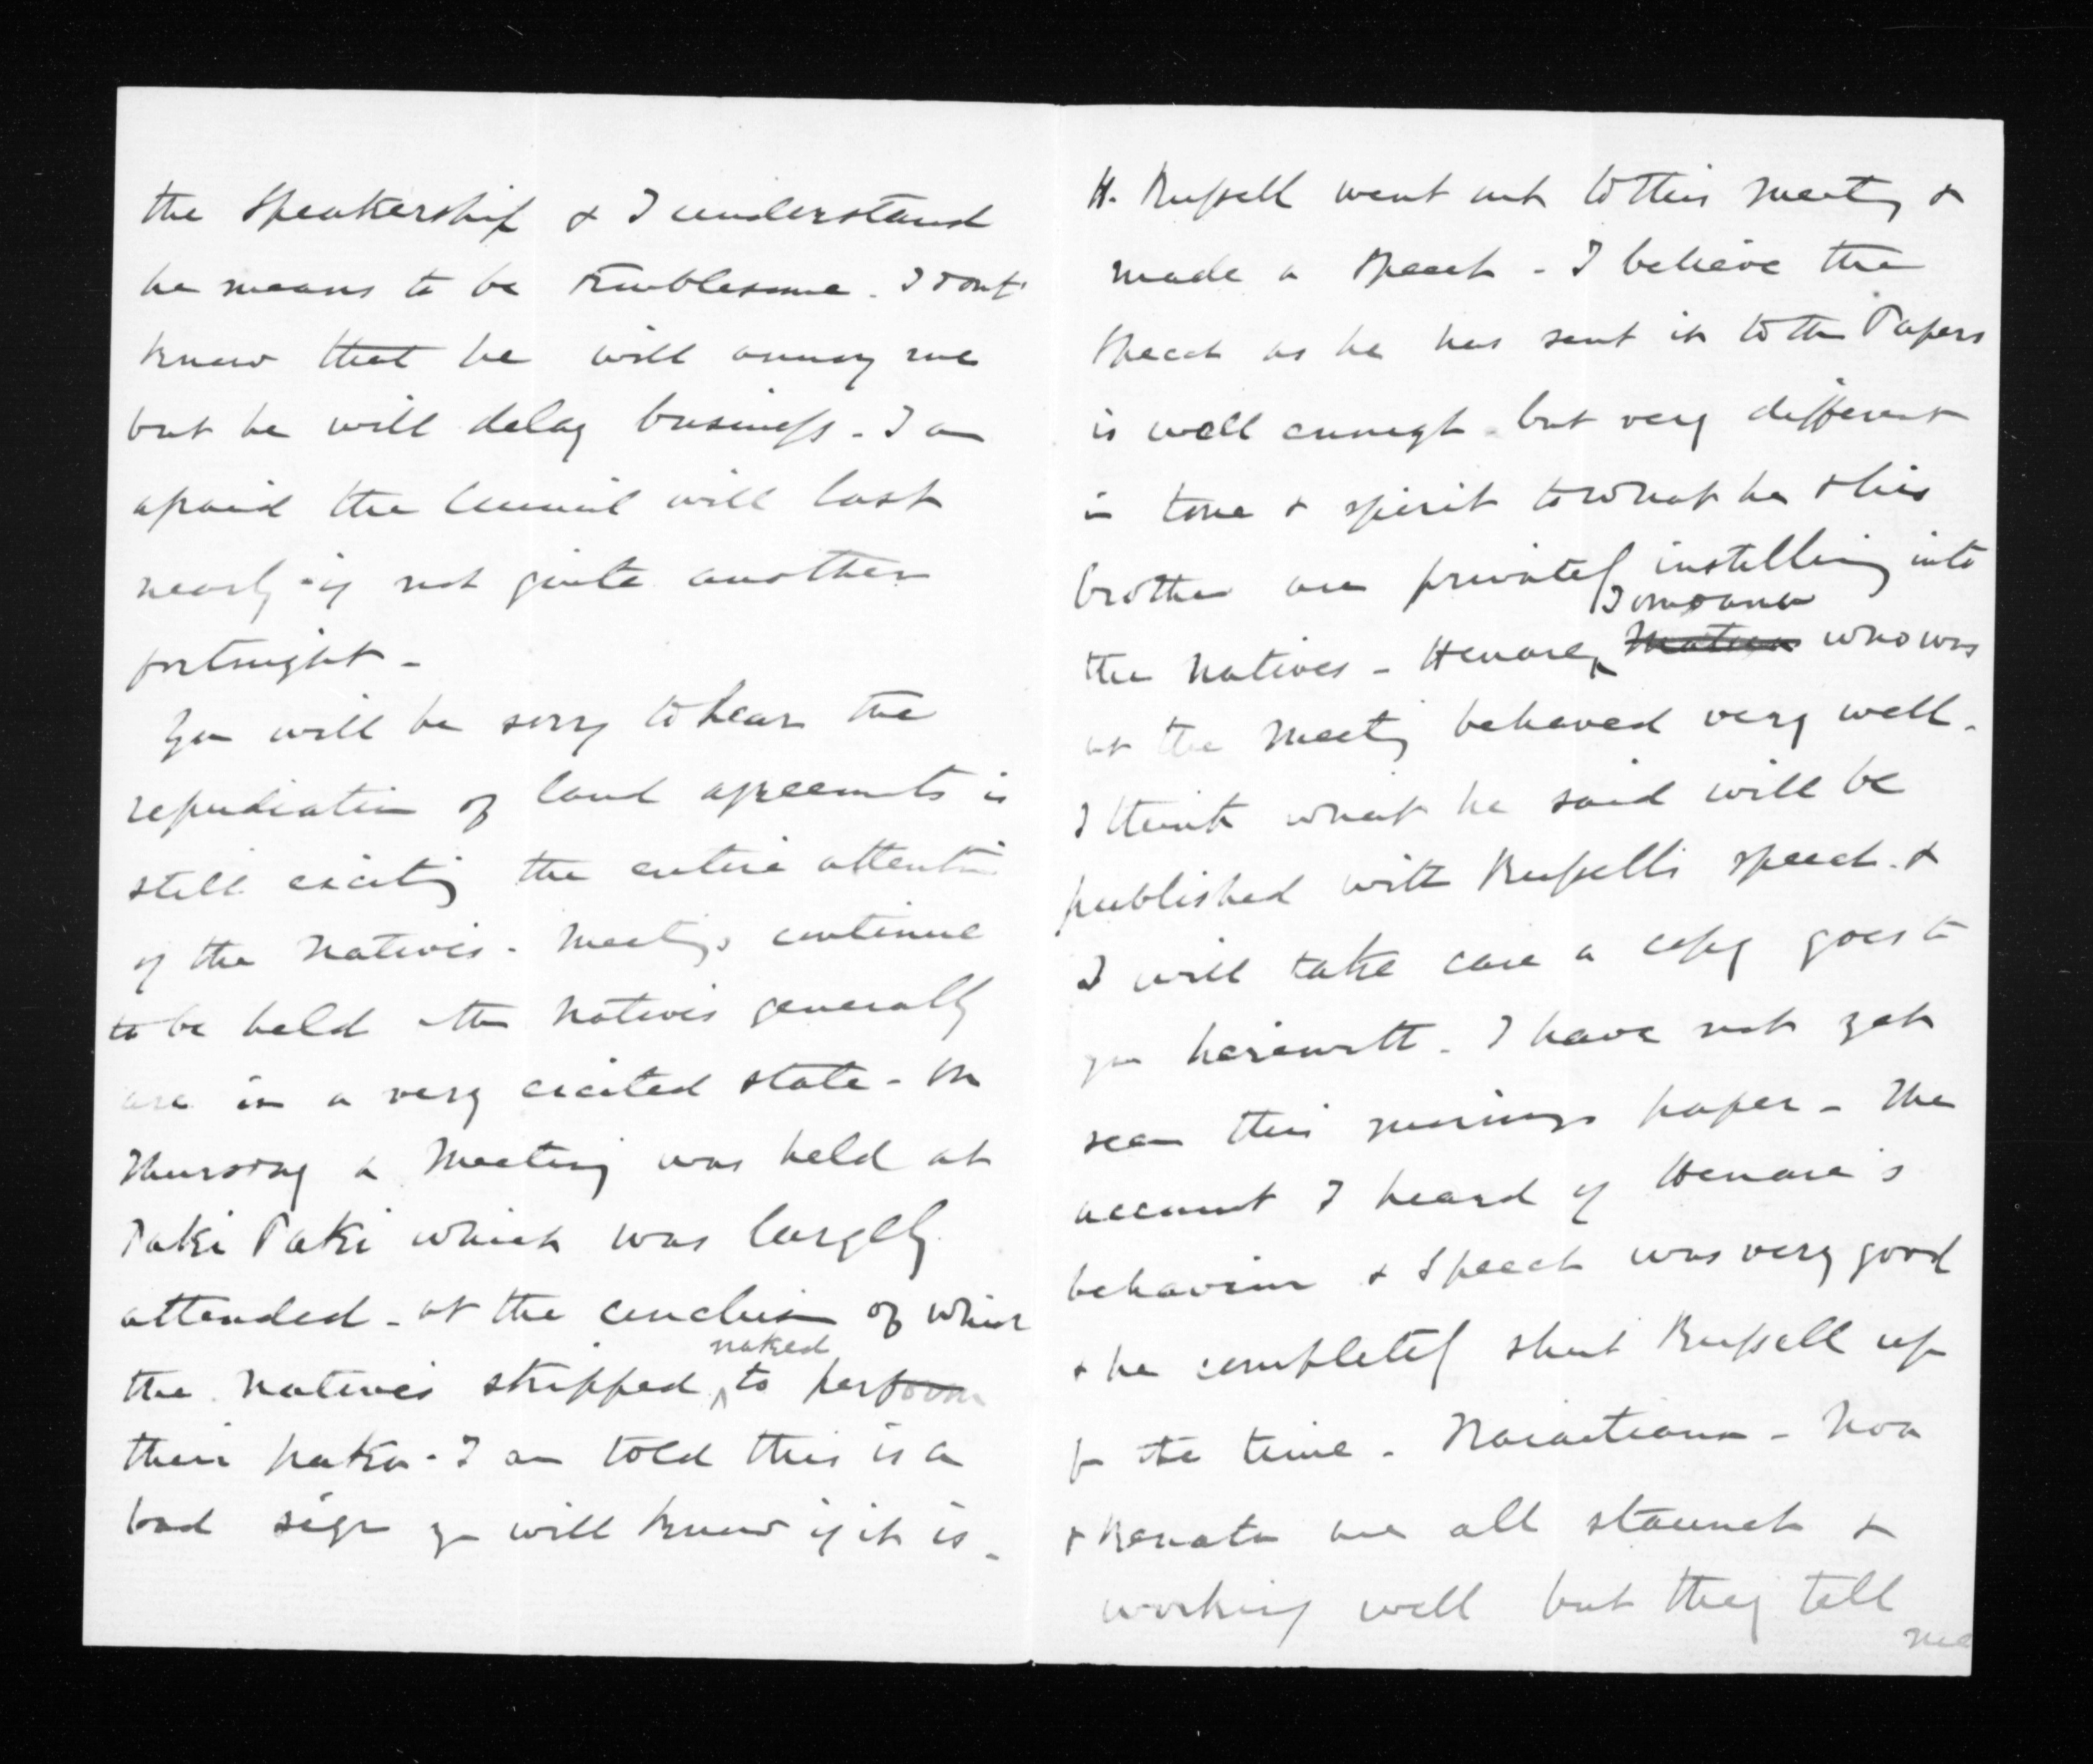 the Speakership & I understand
he means to be troublesome. I dont
know that he will annoy me
but he will delay business. I am
afraid the Council will last
nearly if not quite another
fortnight -
You will be sorry to hear the
repudiation of land agreements is
still exciting the entire attention
of the Natives. Meetings continue
to be held & the Natives generally
are in a very excited state - On
Thursday a Meeting was held at
Paki Paki which was largely
attended - at the conclusion of which
the Natives stripped naked to perform
their haka. I am told this is a
bad sign yu will know if it is -
H. Russell went out to this Meeting &
made a Speech - I believe the
Speech as he has sent it to the Papers
is well enough but very different
in tone & spirit to what he & his
brother are privately instilling into
the Natives - Henare Tomoana Matua who was
at the Meeting behaved very well.
I think what he said will be
published with Russell's speech. &
I will take care a copy goes to
you herewith. I have not yet
seen this mornings paper - The
account I heard of Henare's
behaviour & Speech was very good
& he completely shut Russell up
for the time. Karaitiana - Noa
& Renata are all staunch &
working well but they tell
me